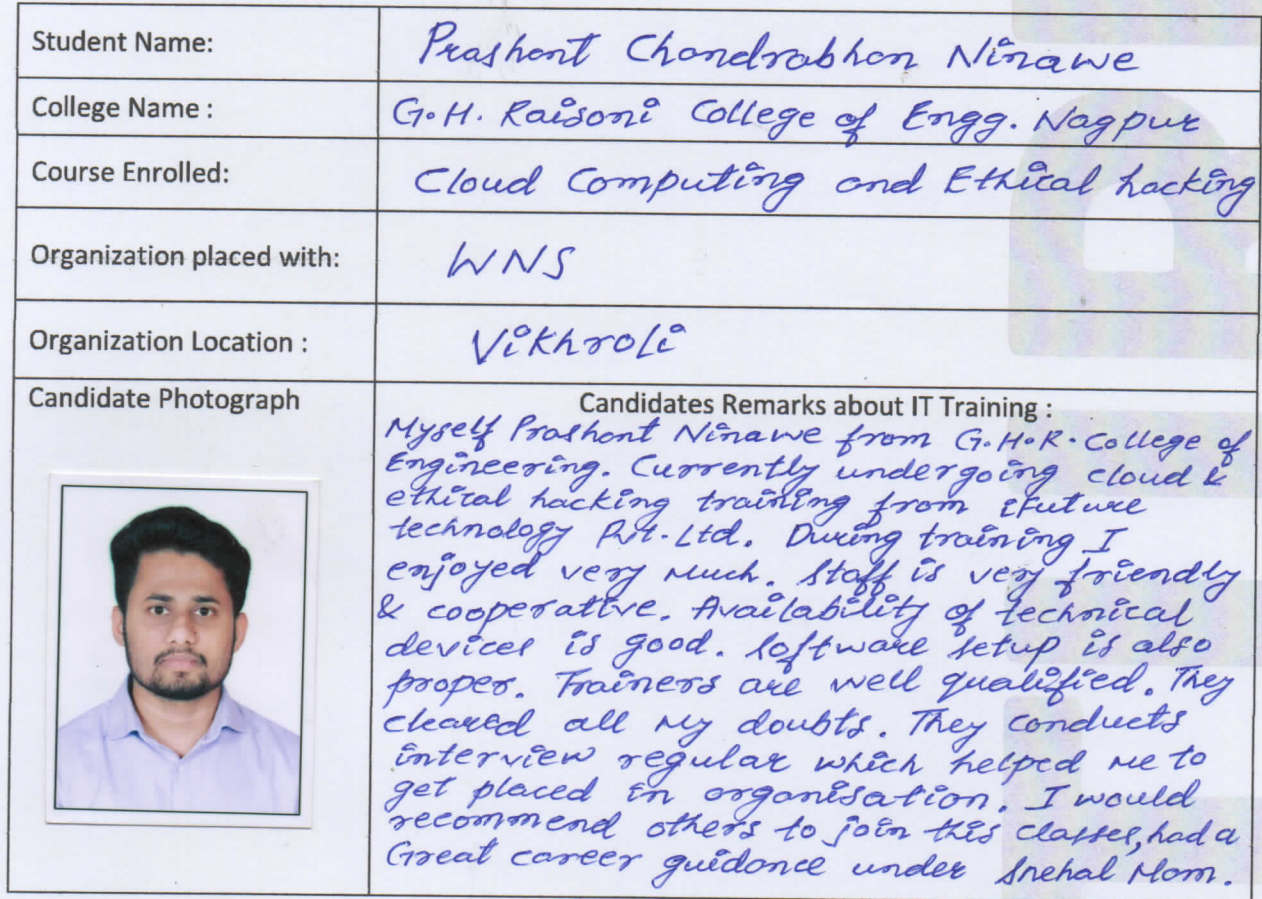 Student Name: Prashant Chandrabhan Ninawe
College Name : G.H. Raisoni College of Engg. Nagpur
Course Enrolled: Cloud Computing and Ethical hacking
Organization placed with: WNS
Organization Location : Vikhroli
Candidate Photograph
Candidates Remarks about IT Training :
Myself Prashant Ninawe from G.H.R. College of
Engineering. Currently undergoing cloud &
ethical hacking training from ifuture
technology Pvt. Ltd. During training I
enjoyed very much. Staff is very friendly
& cooperative. Availability of technical
devices is good. Software setup is also
proper. Trainers are well qualified. They
cleared all my doubts. They conducts
interview regular which helped me to
get placed in organisation. I would
recommend others to join this classes, had a
Great career guidance under Snehal Mam.